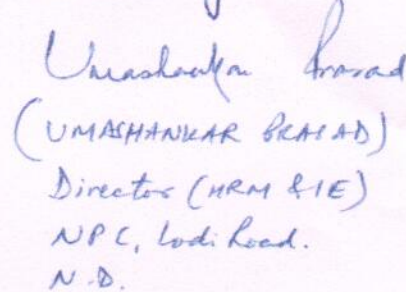 Umashankar Prasad
(UMASHANKAR PRASAD)
Director (HRM & IE)
NPC, Lodi Road.
N.D.